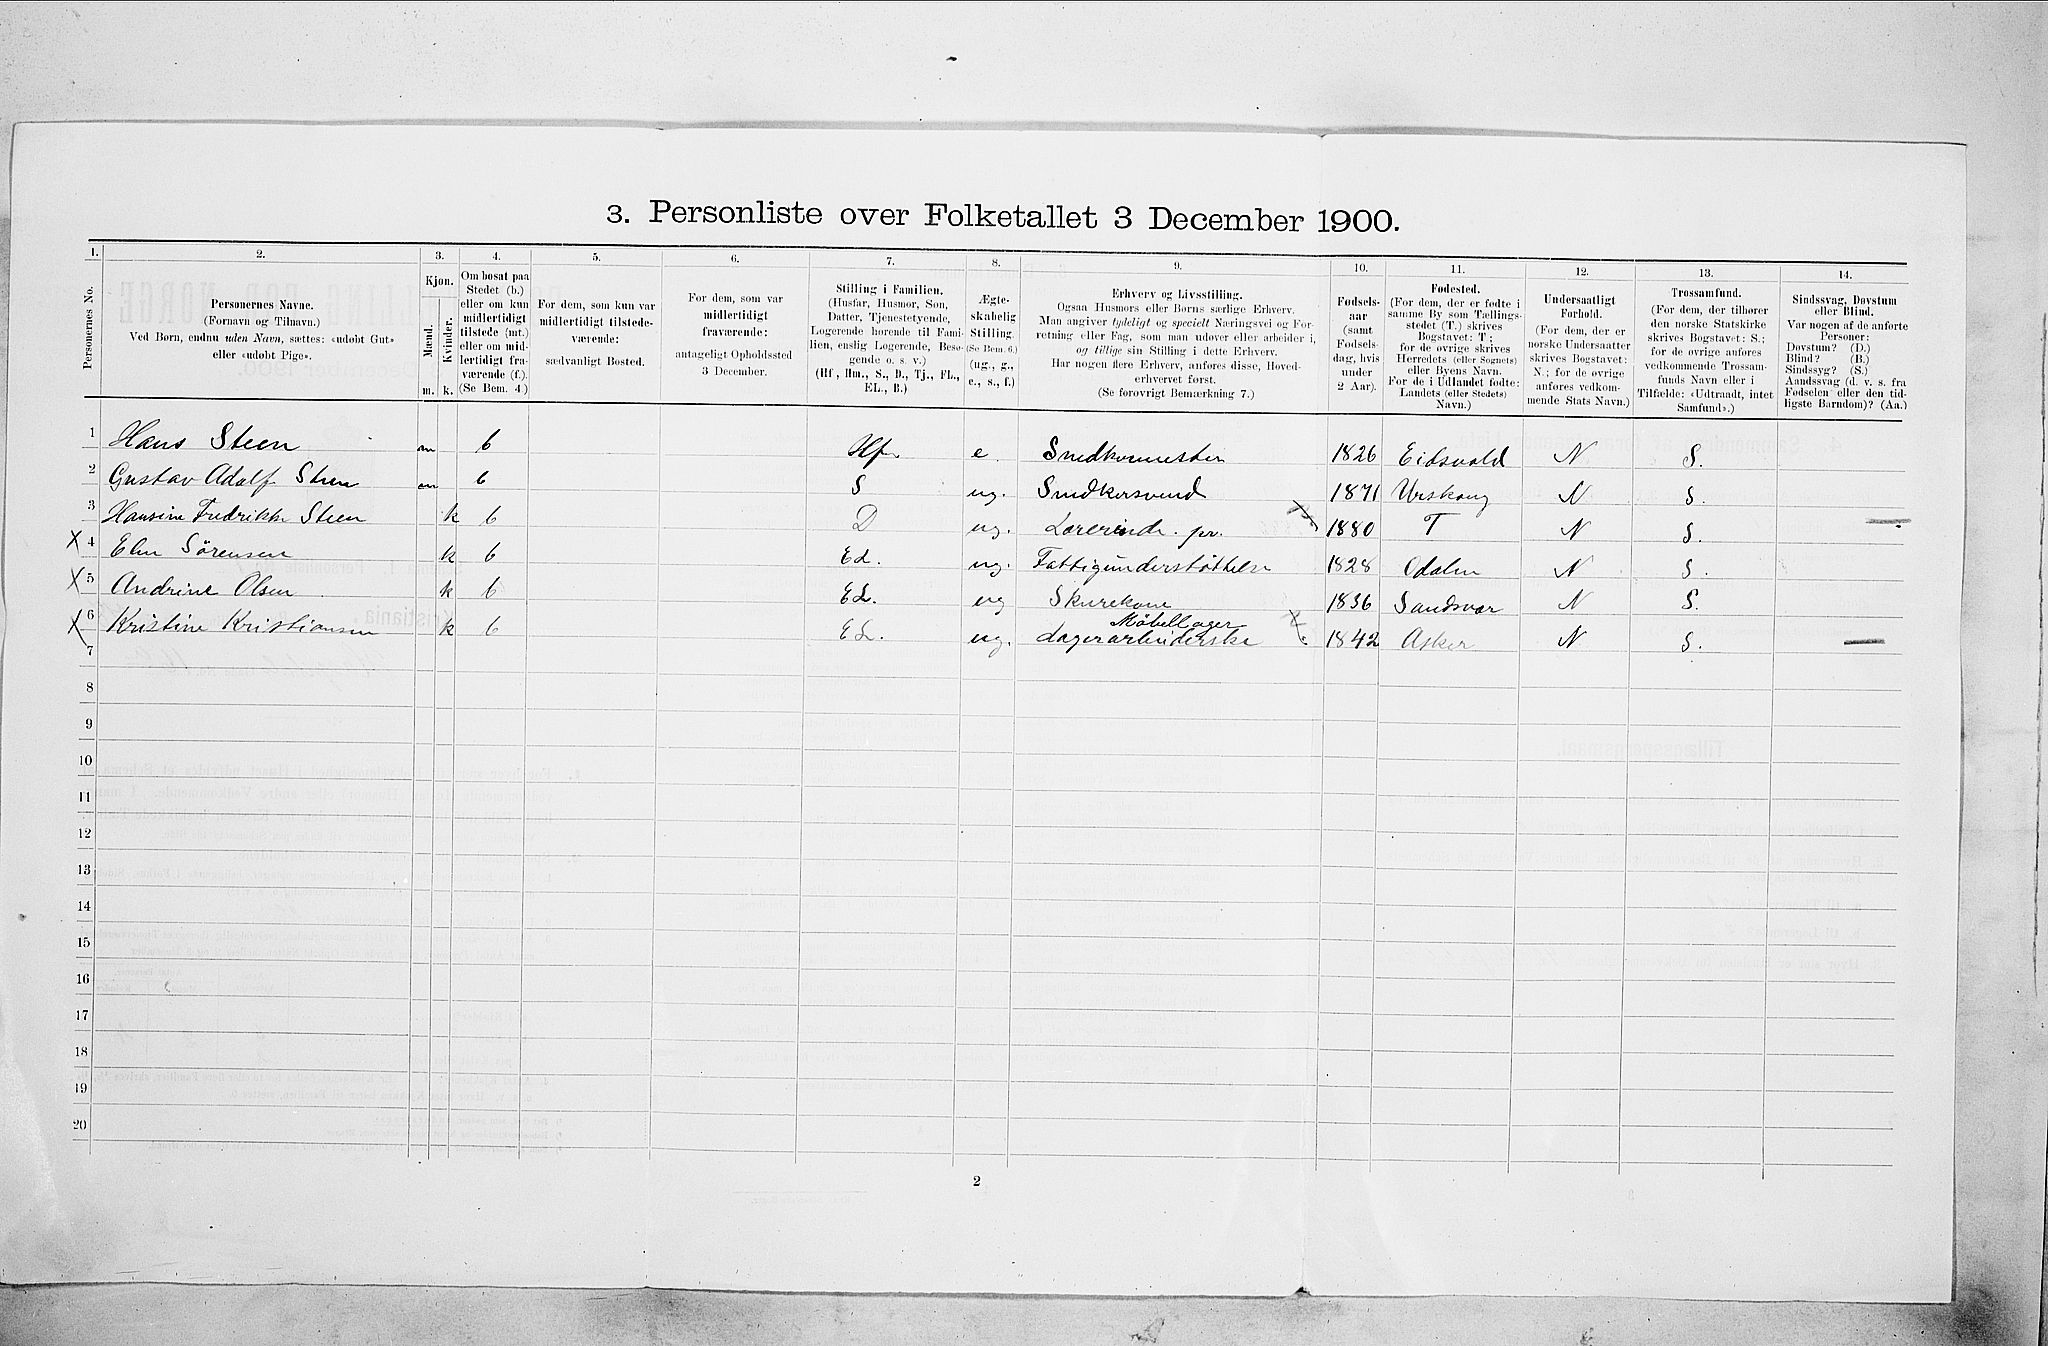 3. Personliste over Folketallet 3 December 1900.
1. 2. 3. 4. 5. 6. 7. 8. 9. 10. 11. 12. 13. 14.
Personernes No.
Personernes Navne.
(Fornavn og Tilnavn.)
Ved Børn, endnu uden Navn, sættes: «udøbt Gut»
eller «udøbt Pige».
Kjøn.
Mænd.
Kvinder.
m. k.
Om bosat paa
Stedet (b.)
eller om kun
midlertidigt
tilstede (mt.)
eller om mid-
lertidigt fra-
værende (f.).
(Se Bem. 4.)
For dem, som kun var
midlertidigt tilstede-
værende:
sædvanligt Bosted.
For dem, som var
midlertidigt
fraværende:
antageligt Opholdssted
3 December.
Stilling i Familien.
(Husfar, Husmor, Søn,
Datter, Tjenestetyende,
Logerende hørende til Fami-
lien, enslig Logerende, Besø-
gende o. s. v.)
(Hf., Hm., S., D., Tj., FL.,
EL., B.)
Ægte-
skabelig
Stilling.
(Se Bem. 6.)
(ug., g.,
e., s., f.)
Erhverv og Livsstilling.
Ogsaa Husmors eller Børns særlige Erhverv.
Man angiver tydeligt og specielt Næringsvei og For-
retning eller Fag, som man udøver eller arbeider i,
og tillige sin Stilling i dette Erhverv.
Har nogen flere Erhverv, anføres disse, Hoved-
erhvervet først.
(Se forøvrigt Bemærkning 7.)
Fødsels-
aar
(samt
Fødsels-
dag, hvis
under
2 Aar).
Fødested.
(For dem, der er fødte i
samme By som Tællings-
stedet (T.) skrives
Bogstavet: T;
for de øvrige skrives
Herredets (eller Sognets)
eller Byens Navn.
For de i Udlandet fødte:
Landets (eller Stedets)
Navn.)
Undersaatligt
Forhold.
(For dem, der er
norske Undersaatter
skrives Bogstavet:
N.; for de øvrige
anføres vedkom-
mende Stats Navn.)
Trossamfund.
(For dem, der tilhører
den norske Statskirke
skrives Bogstavet: S.;
for de øvrige anføres
vedkommende Trossam-
funds Navn eller i
Tilfælde: «Udtraadt, intet
Samfund».)
Sindssvag, Døvstum
eller Blind.
Var nogen af de anførte
Personer:
Døvstum? (D.)
Blind? (B.)
Sindssyg? (S.)
Aandssvag (d. v. s. fra
Fødselen eller den tid-
ligste Barndom)? (Aa.)
1 Hans Steen m b Hf. e. Snedkermester 1826 Eidsvold N S.
2 Gustav Adolf Steen m b S ug. Snedkersvend 1871 Urskoug N S.
3 Hansine Fredrikke Steen k b D ug. Lærerinde. pr. 1880 T N S. —
X 4 Elin Sörensen k b EL. ug. Fattigunderstøttelse 1828 Odalen N S.
X 5 Andrine Olsen k b EL. ug Skurekone 1836 Sandsvær N S.
Møbellager
X 6 Kristine Kristiansen k b EL. ug. Lagerarbeiderske 1842 Asker N S. —
7
8
9
10
11
12
13
14
15
16
17
18
19
20
2